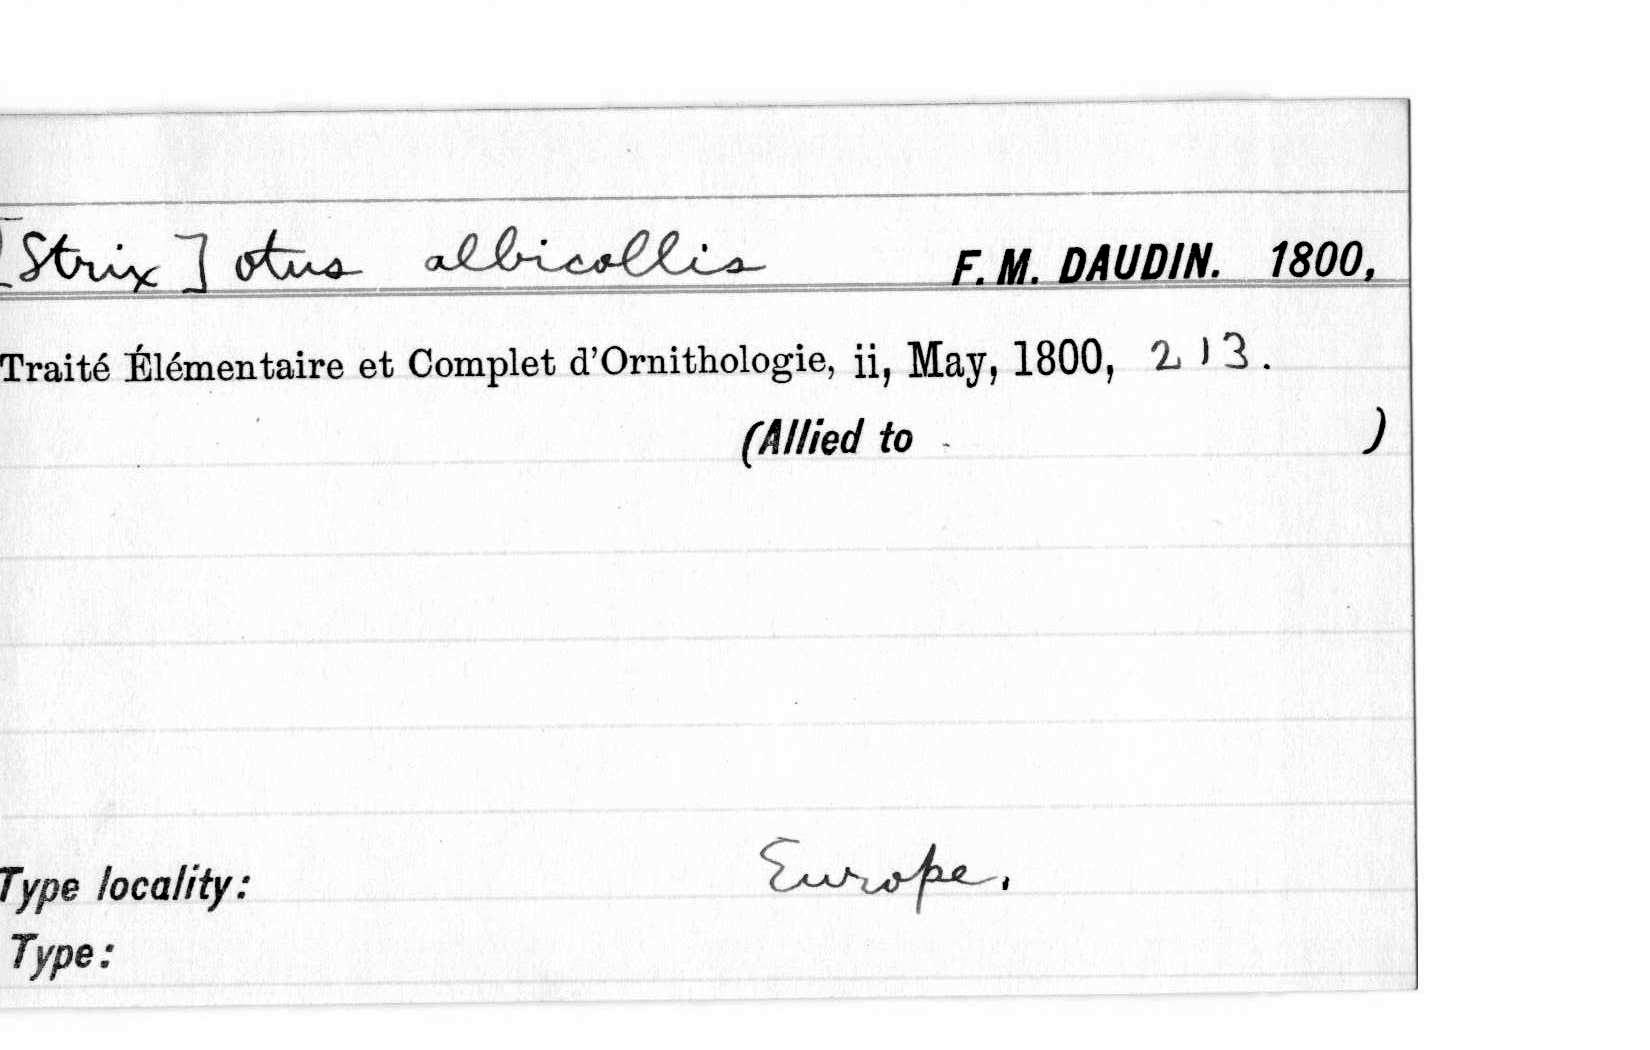 [Strix] otus albicollis F. M. DAUDIN. 1800,
Traité Élémentaire et Complet d'Ornithologie, ii, May, 1800, 213.
(Allied to )
Type locality: Europe.
Type: